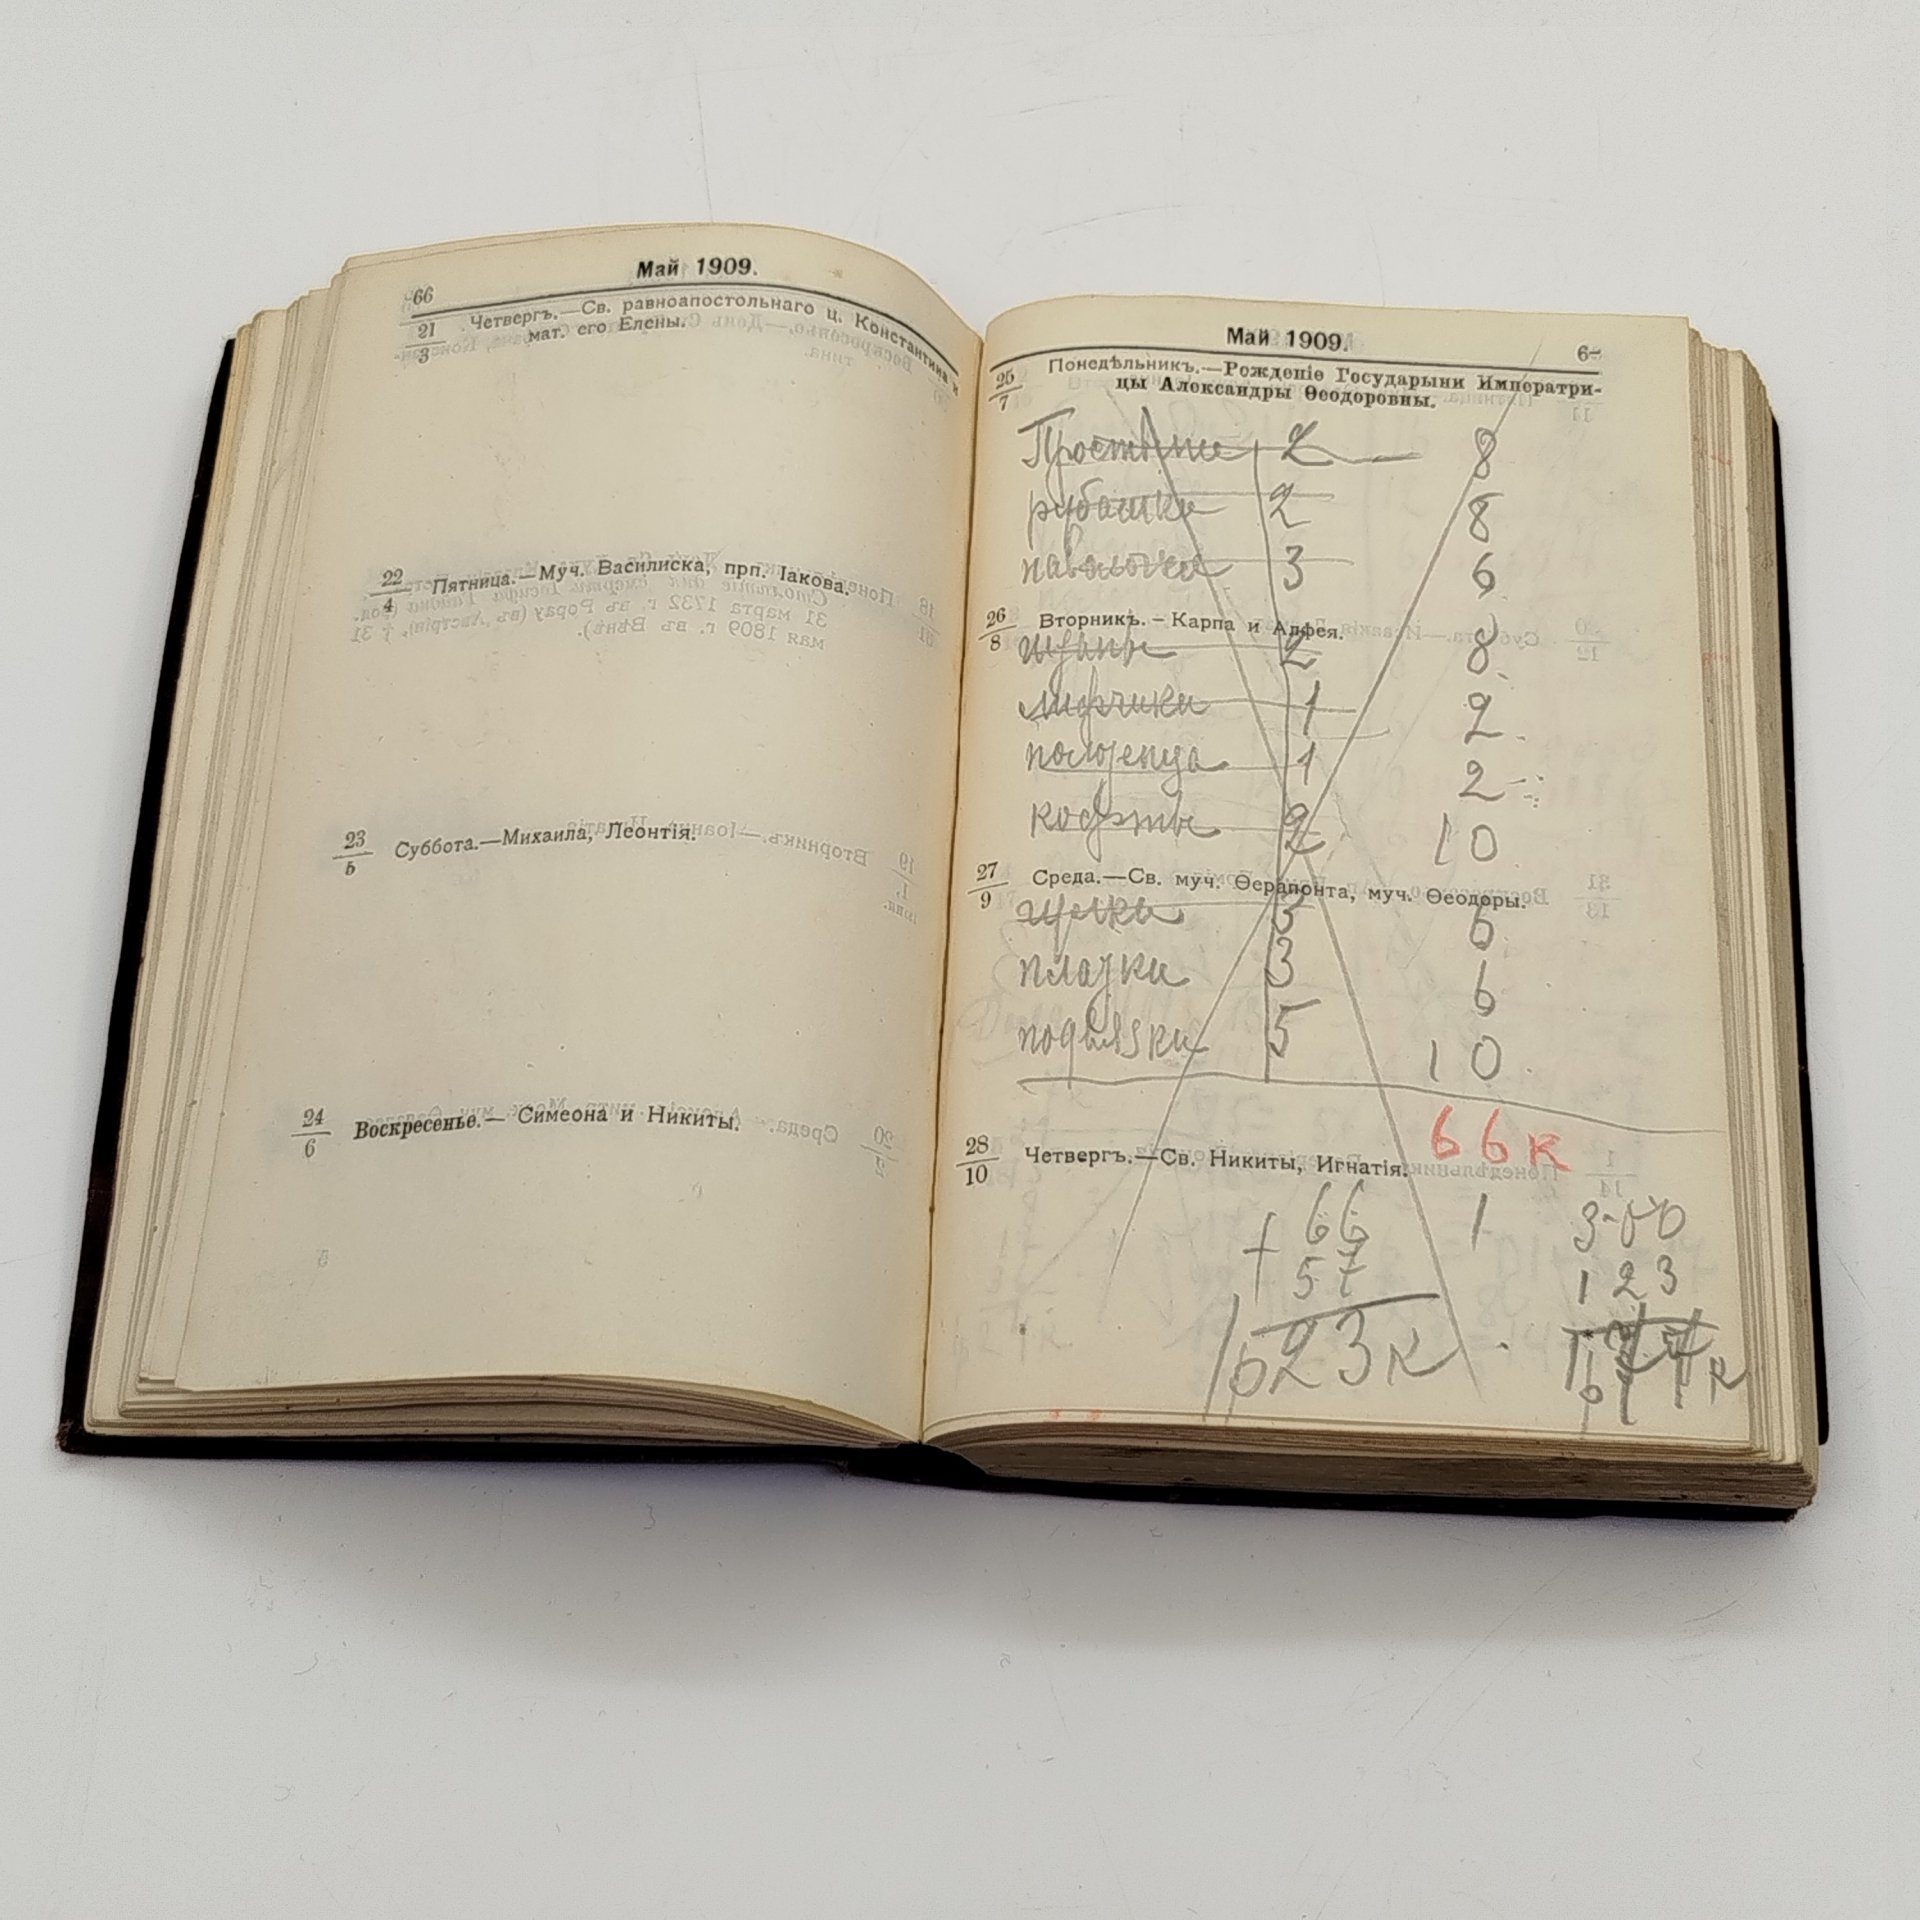 Май 1909.
66
21/3 Четвергъ.—Св. равноапостольнаго ц. Константина и
мат. его Елены.
22/4 Пятница.—Муч. Василиска, прп. Іакова.
23/5 Суббота.—Михаила, Леонтія.
24/6 Воскресенье.— Симеона и Никиты.
Май 1909.
25/7 Понедѣльникъ.—Рожденіе Государыни Императри-
цы Александры Ѳеодоровны.
Простыни 2 8
рубашки 2 8
наволочки 3 6
26/8 Вторникъ.—Карпа и Алфея.
2 8
лифчики 1 2
полотенца 1 2
кофты 2 10
27/9 Среда.—Св. муч. Ѳерапонта, муч. Ѳеодоры.
чулки 3 6
платки 3 6
подвязки 5 10
66к
28/10 Четвергъ.—Св. Никиты, Игнатія.
66 1 3-00
+ 57 123
1р23к 1р77к